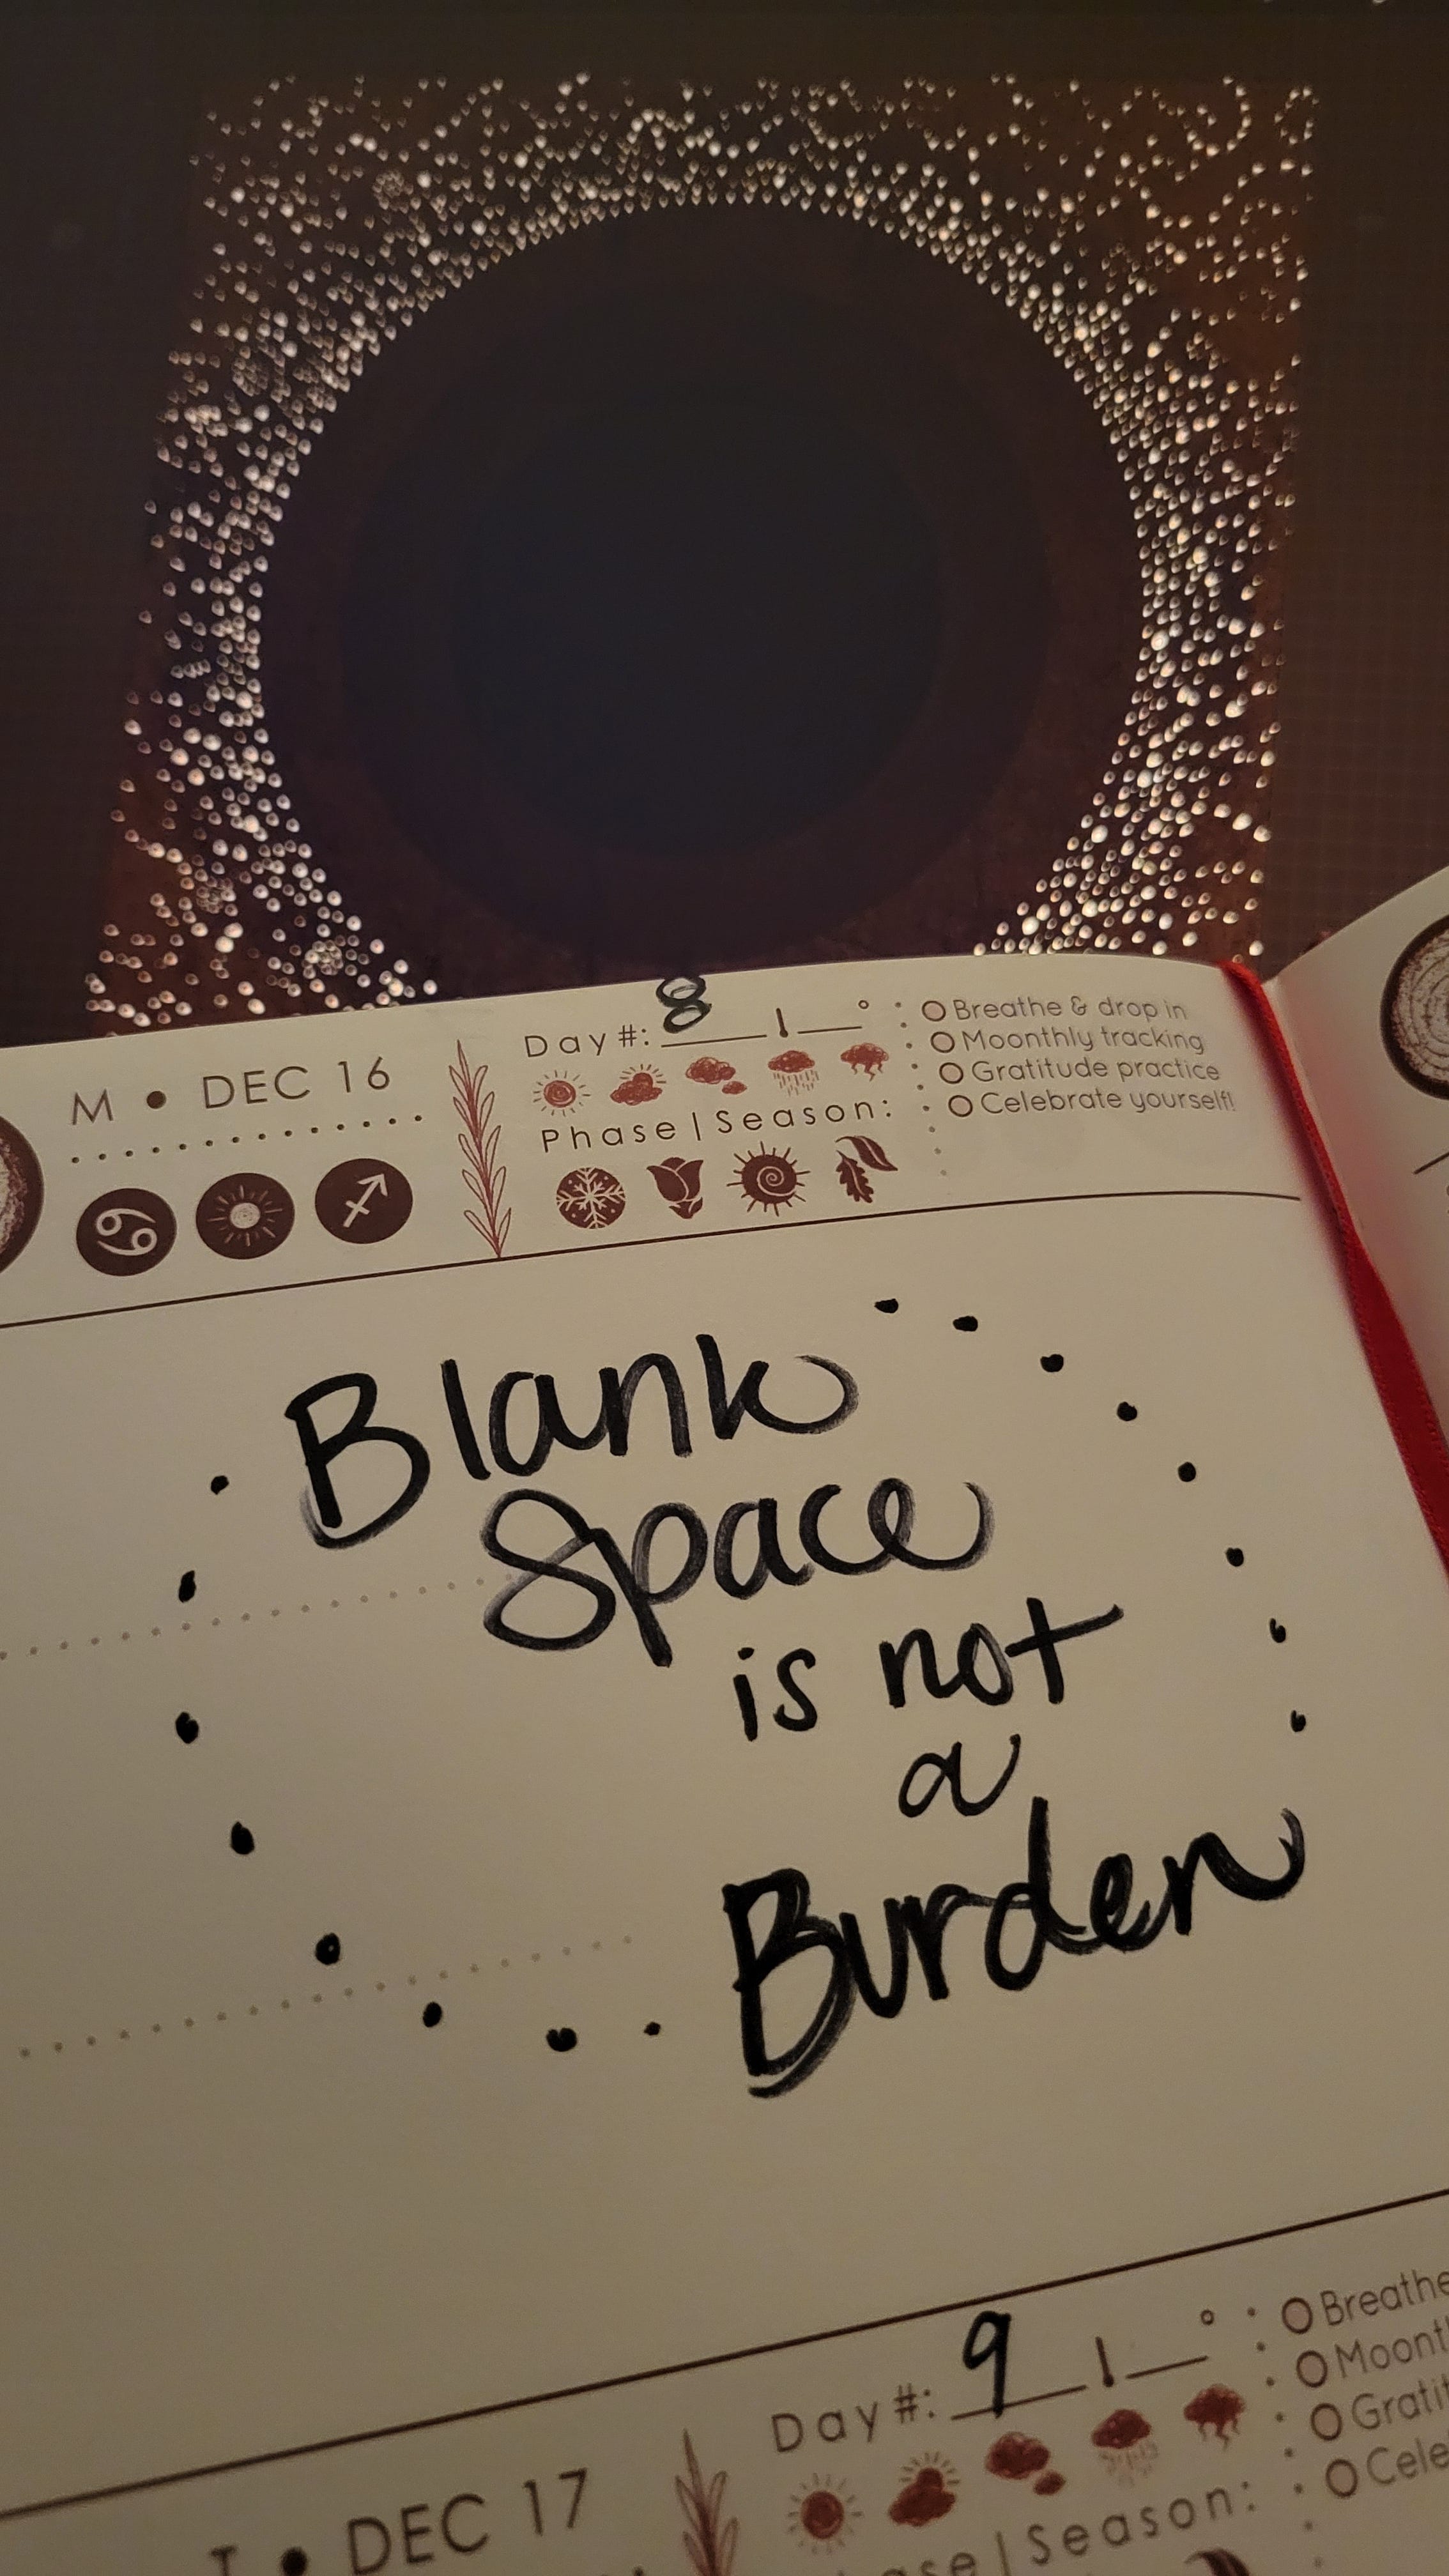 Day #: 8 °
M • DEC 16
Phase | Season:
Breathe & drop in
Moonthly tracking
Gratitude practice
Celebrate yourself!
Blank
Space
is not
a
Burden
Day #: 9 °
T • DEC 17
Season:
Breathe